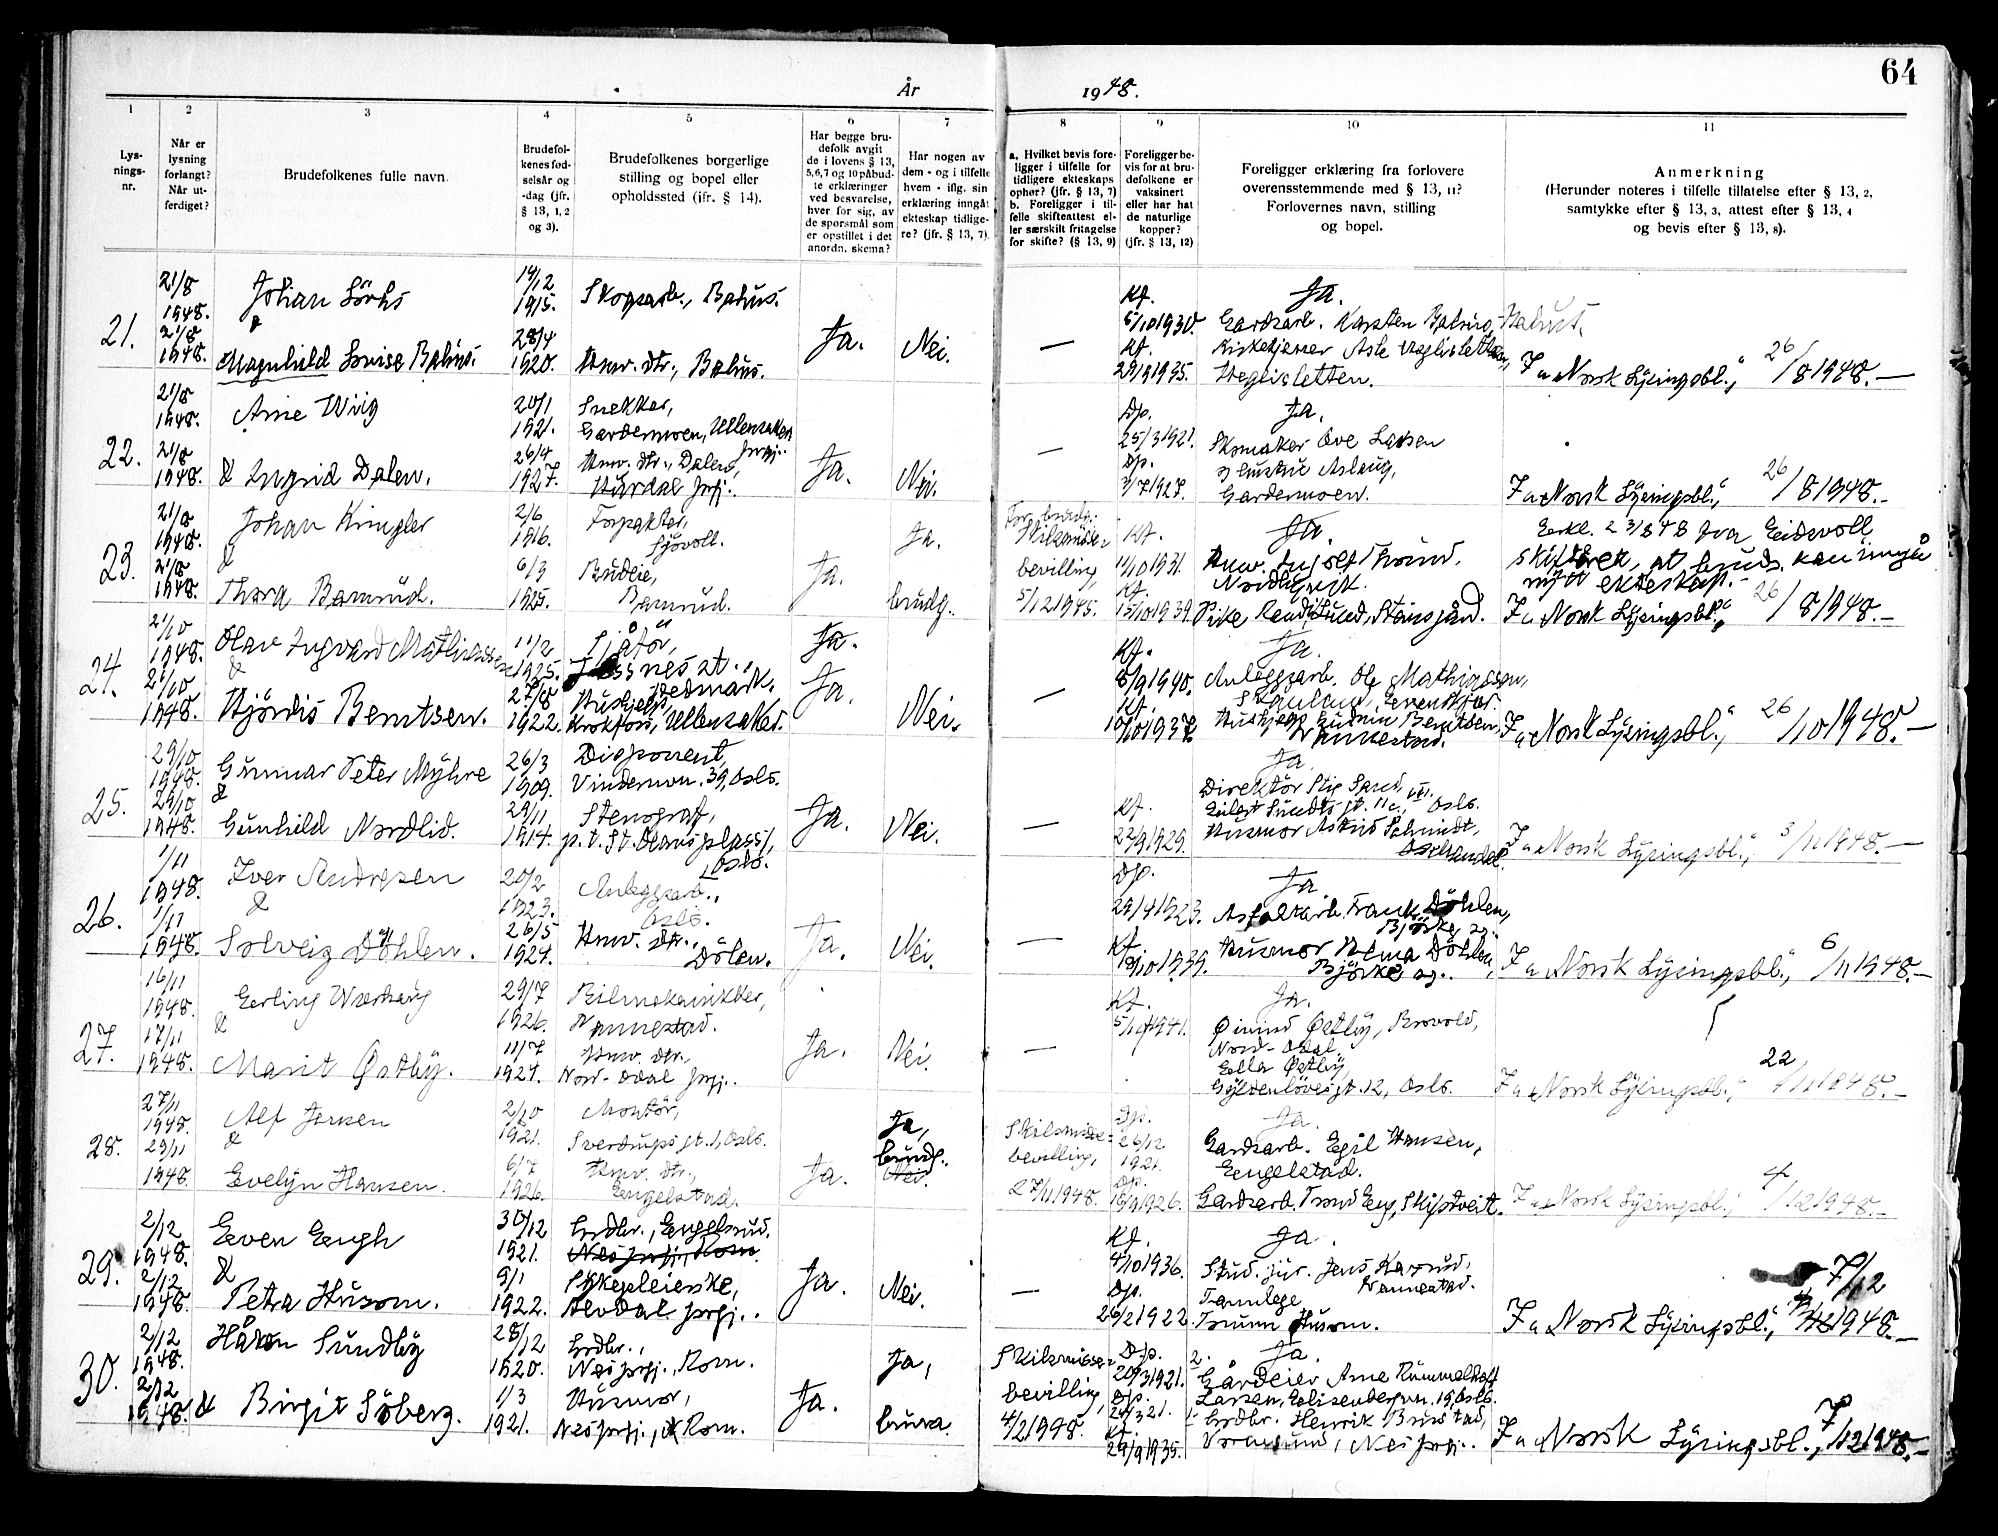 64
År 1948.
1 2 3 4 5 6 7 8 9 10 11
Lys-
nings-
nr.
Når er
lysning
forlangt?
Når ut-
ferdiget?
Brudefolkenes fulle navn.
Brudefol-
kenes fød-
selsår og
-dag (jfr.
§ 13, 1, 2
og 3).
Brudefolkenes borgerlige
stilling og bopel eller
opholdssted (jfr. § 14).
Har begge bru-
defolk avgit
de i lovens § 13,
5, 6, 7 og 10 påbud-
te erklæringer
ved besvarelse,
hver for sig, av
de spørsmål som
er opstillet i det
anordn. skema?
Har nogen av
dem - og i tilfelle
hvem - iflg. sin
erklæring inngåt
ekteskap tidlige-
re? (jfr. § 13, 7).
a. Hvilket bevis fore-
ligger i tilfelle for
tidligere ekteskaps
ophør? (jfr. § 13, 7)
b. Foreligger i til-
felle skifteattest el-
ler særskilt fritagelse
for skifte? (§ 13, 9)
Foreligger be-
vis for at bru-
defolkene er
vaksinert
eller har hat
de naturlige
kopper?
(jfr. § 13, 12)
Foreligger erklæring fra forlovere
overensstemmende med § 13, 11?
Forlovernes navn, stilling
og bopel.
Anmerkning
(Herunder noteres i tilfelle tillatelse efter § 13, 2,
samtykke efter § 13, 3, attest efter § 13, 4
og bevis efter § 13, 8).
21.
21/8
1948.
21/8
1948.
Johan
&
Magnhild Lovise Bahus.
14/12
1915.
28/4
1920.
Skogsarb., Bahus.
Hmv. dtr., Bahus.
Ja.
Nei.
—
Kf.
5/10 1930.
Kf.
1935.
Ja.
Gardsarb. Karsten
Kirketjener Asle
I „Norsk Lysingsbl.", 26/8 1948.—
22.
21/8
1948.
21/8
1948.
Arne Wiig
& Ingrid Dalen.
20/1
1921.
26/4
1927.
Snekker,
Gardermoen, Ullensaker
prgj.
Hmv. dtr., Dalen,
Hurdal prgj.
Ja.
Nei.
—
Dp.
25/3 1921.
Dp.
3/7 1927.
Ja.
Skomaker Ove Larsen
og hustru Aslaug,
Gardermoen.
I „Norsk Lysingsbl.", 26/8 1948.—
23.
21/8
1948.
21/8
1948.
Johan
&
Thora Bamrud.
2/6
1916.
6/3
1925.
Forpakter,
Budeie,
Bamrud.
Ja.
Ja.
brudg.
For brudg.:
Skilsmisse-
bevilling,
5/12 1945.
Kf.
11/10 1931.
Kf.
15/10 1939.
Ja.
Erkl. 23/8 48 fra Eidsvoll
skifterett, at brudg. kan inngå
nytt ekteskap.—
I „Norsk Lysingsbl.", 26/8 1948.—
24.
21/10
1948.
21/10
1948.
Olav Ingvard
&
Hjördis Berntsen.
11/2
1925.
27/8
1922.
Sjåför,
Hushjelp,
Krokfoss, Ullensaker.
Ja.
Ja.
Nei.
—
Kf.
8/9 1940.
Kf.
10/10 1937.
Ja.
Anleggsarb. Ole Mathiassen,
Hushjelp Gudrun Berntsen,
I „Norsk Lysingsbl.", 26/10 1948.—
25.
29/10
1948.
29/10
1948.
Gunnar Peter Myhre
&
Gunhild Nordlid.
26/3
1909.
29/11
1914.
Disponent,
Vindernvn. 39, Oslo.
Stenograf,
p.t. St. Olavs plass 1,
Oslo.
Ja.
Nei.
—
Kf.
22/9 1929.
Ja.
Direktör Stig
Eilert Sundts gt. 11 c, Oslo.
Husmor Astrid Schmidt,
I „Norsk Lysingsbl.", 3/11 1948.—
26.
1/11
1948.
1/11
1948.
Iver Andresen
&
Solveig Döhlen.
20/2
1923.
26/5
1924.
Anleggsarb.,
Oslo.
Hmv. dtr.,
Dölen.
Ja.
Nei.
—
Dp.
29/4 1923.
Kf.
1939.
Ja
Asfaltarb. Frank Döhlen,
Husmor Döhlen,
I „Norsk Lysingsbl.", 6/11 1948.—
27.
16/11
1948.
17/11
1948.
Erling
&
Marit Østby.
29/7
1926.
11/7
1924.
Bilmekaniker,
Nannestad.
Hmv. dtr.,
Nord-Odal prgj.
Ja.
Nei.
—
Kf.
5/10 1941.
Ja.
Øivind Østby,
Nord-Odal
Ella Østby,
Gyldenlövesgt. 12, Oslo.
I „Norsk Lysingsbl.", 22/11 1948.—
28.
27/11
1948.
29/11
1948.
Alf Jensen
&
Evelyn Hansen.
2/10
1921.
6/7
1926.
Montör,
Sverdrups gt. 1, Oslo.
Hmv. dtr.,
Engelstad.
Ja.
Ja,
brudg.
Nei.
Skilsmisse-
bevilling,
27/11 1948.
Dp.
26/12
1921.
Dp.
1926.
Ja.
Gardsarb. Egil Hansen,
Engelstad.
Gardsarb. Trond Eng, Skiptveit.
I „Norsk Lysingsbl.", 4/12 1948.—
29.
2/12
1948.
2/12
1948.
Even Engh
&
Petra Husom.
30/12
1921.
9/1
1922.
Grdbr., Engelsrud.
Nes prgj., Rom.
Sykepleierske,
Alvdal prgj.
Ja.
Nei.
—
Kf.
4/10 1936.
Dp.
26/2 1922.
Ja.
Stud. jur. Jens
Nannestad.
Tannlege
Husom.
7/12
I „Norsk Lysingsbl.", 1948.—
30.
2/12
1948.
2/12
1948.
Håkon Sundby
& Birgit Söberg.
28/12
1920.
1/3
1921.
Grdbr.,
Nes prgj., Rom.
Husmor,
Nes prgj., Rom.
Ja.
Ja,
brura.
Skilsmisse-
bevilling,
4/2 1948.
Dp.
20/3 1921.
Dp.
Kf.
29/9 1935.
Ja.
2. Gårdeier Arne
Larsen, Oslo.
1. Grdbr. Henrik
Nes prgj.
I „Norsk Lysingsbl.", 7/12 1948.—